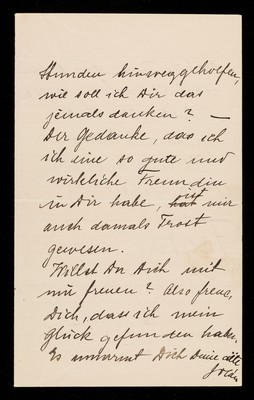 Stunden hinweggeholfen,
wie soll ich Dir das
jemals danken? —
Der Gedanke, das ich
ich eine so gute und
wirkliche Freundin
in Dir habe, hat ist mir
auch damals Trost
gewesen.
Willst Du Dich mit
mir freuen? Also freue,
Dich, dass ich mein
Glück gefunden habe.
Es umarmt Dich Deine alte